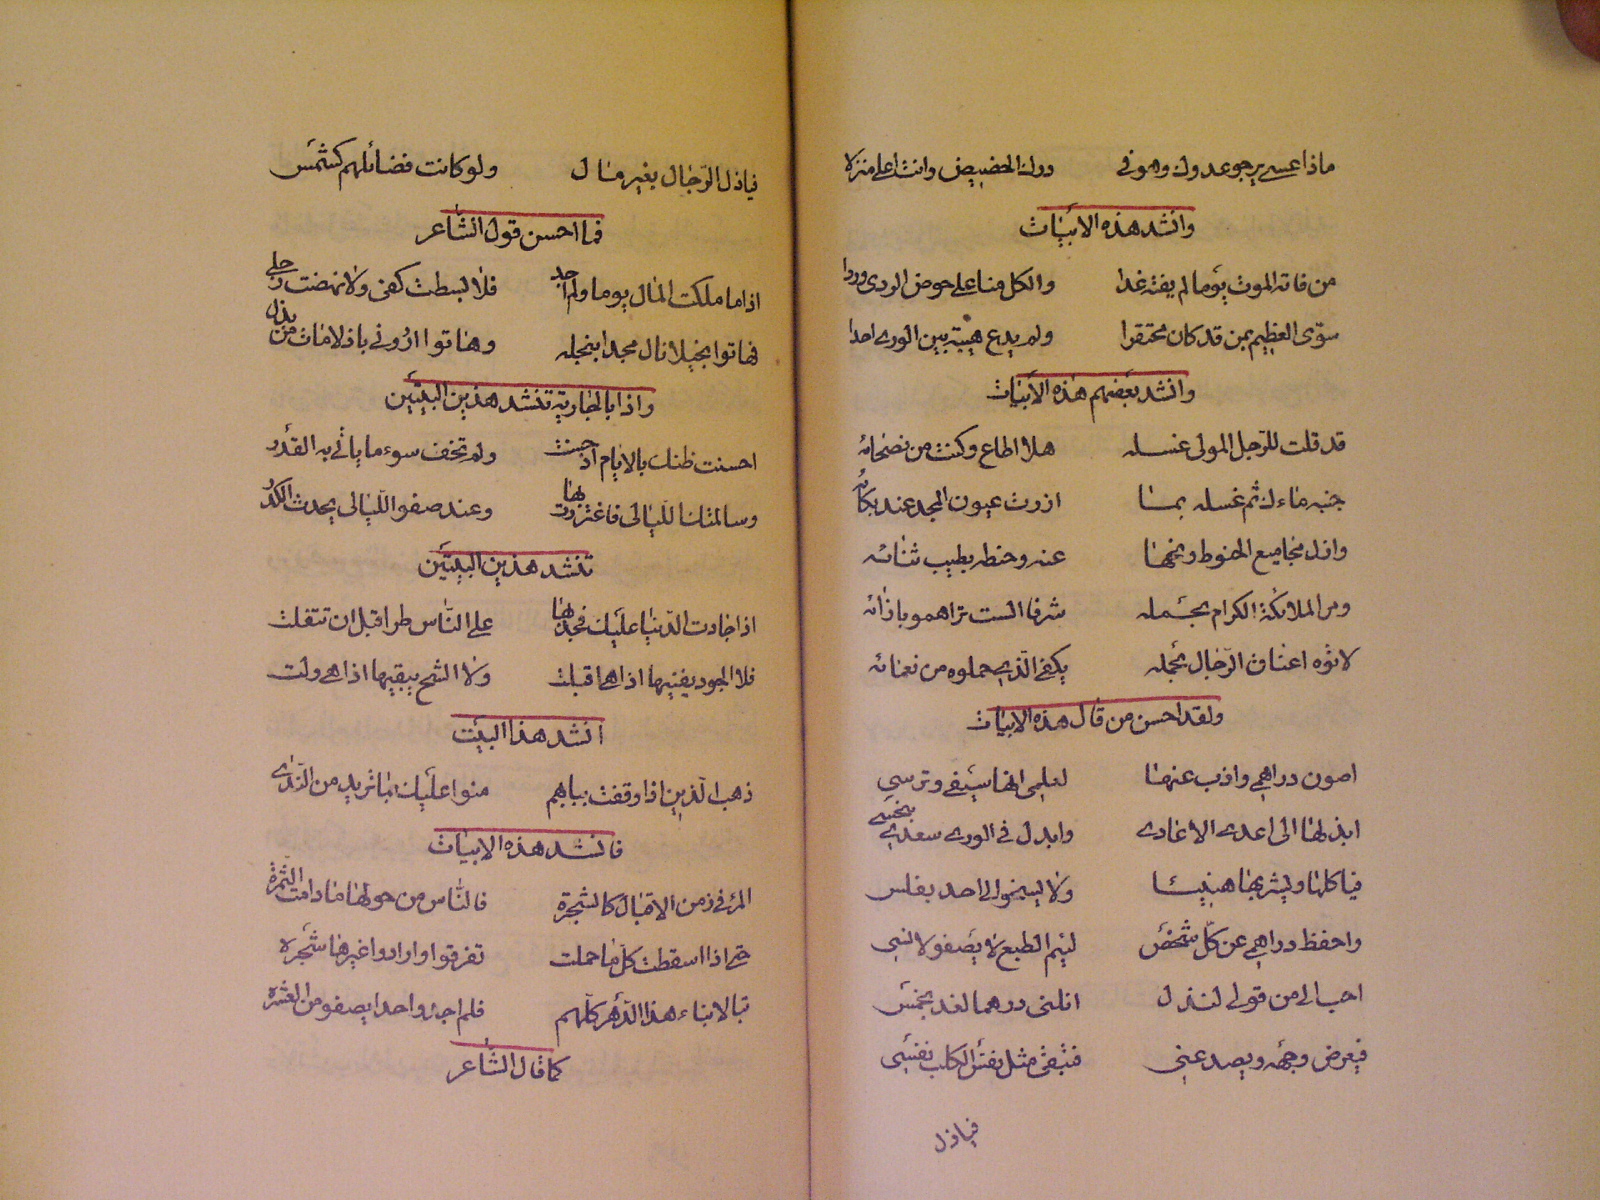 ماذا عسى يرجو عدوك وهو في دوك الحضيض وانت اعلى منزلا
وانشد هذه الابيات
من فاته الموت يوما لم يفته غدا والكل منا على حوض الردى وردا
سوّى العظيم بمن قد كان محتقرا ولم يدع هيبة بين الورى احدا
وانشد بعضهم هذه الابيات
قد قلت للرّجل المولى غسله هلا اطاع وكنت من نصحائه
جنبه ماءك ثم غسله بما اذرت عيون المجد عند بكائه
وازل مجاميع الحنوط ونحها عنه وحنطه بطيب ثنائه
ومر الملائكة الكرام بحمله شرفا الست تراهمو بازائه
لا توه اعناق الرّجال بحمله يكفي الّذي حملوه من نعمائه
ولقد احسن من قال هذه الابيات
اصون دراهمي واذب عنها لعلمي انها سيفي وترسي
ابذلها الى اعدى الاعادي وابدل في الورى سعدي بنحسي
فيا كلها ويشربها هنيئا ولا يسخو الى احد بفلس
واحفظ دراهمي عن كلّ شخص لئيم الطبع لا يصفو لانسي
احب الى من قولي لنذل انلني درهما لغد بخمس
فيعرض وجهه ويصد عني فتبقى مثل نفس الكلب نفسي
فياذل
فياذل الرّجال بغير مال ولو كانت فضائلهم كشمس
فما احسن قول الشّاعر
اذا ما ملكت المال يوما ولم اجد فلا بسطت كفي ولا نهضت رجلي
فهاتوا بخيلا نال مجدا ببخله وهاتوا اروني باذلا مات من بذل
واذا بالجارية تنشد هذين البيتين
احسنت ظنك بالايام اذ حسنت ولم تخف سوء ما يأتي به القدر
وسالمتك اللّيالي فاغتررت بها وعند صفو اللّيالي يحدث الكدر
تنشد هذين البيتين
اذا جادت الدّنيا عليك فجد بها على النّاس طرا قبل ان تتفلت
فلا الجود يفنيها اذا هي اقبلت ولا الشح يبقيها اذا هي ولت
انشد هذا البيت
ذهب الّذين اذا وقفت ببابهم منوا عليك بما تريد من النّدى
فانشد هذه الابيات
المرء في زمن الاقبال كالشجرة فالنّاس من حولها ما دامت الثّمرة
حتى اذا اسقطت كلّ ما حملت تفرقوا وارادوا غيرها شجره
تبا لابناء هذا الدّهر كلّهم فلم اجد واحدا يصفو من العشرة
كما قال الشّاعر